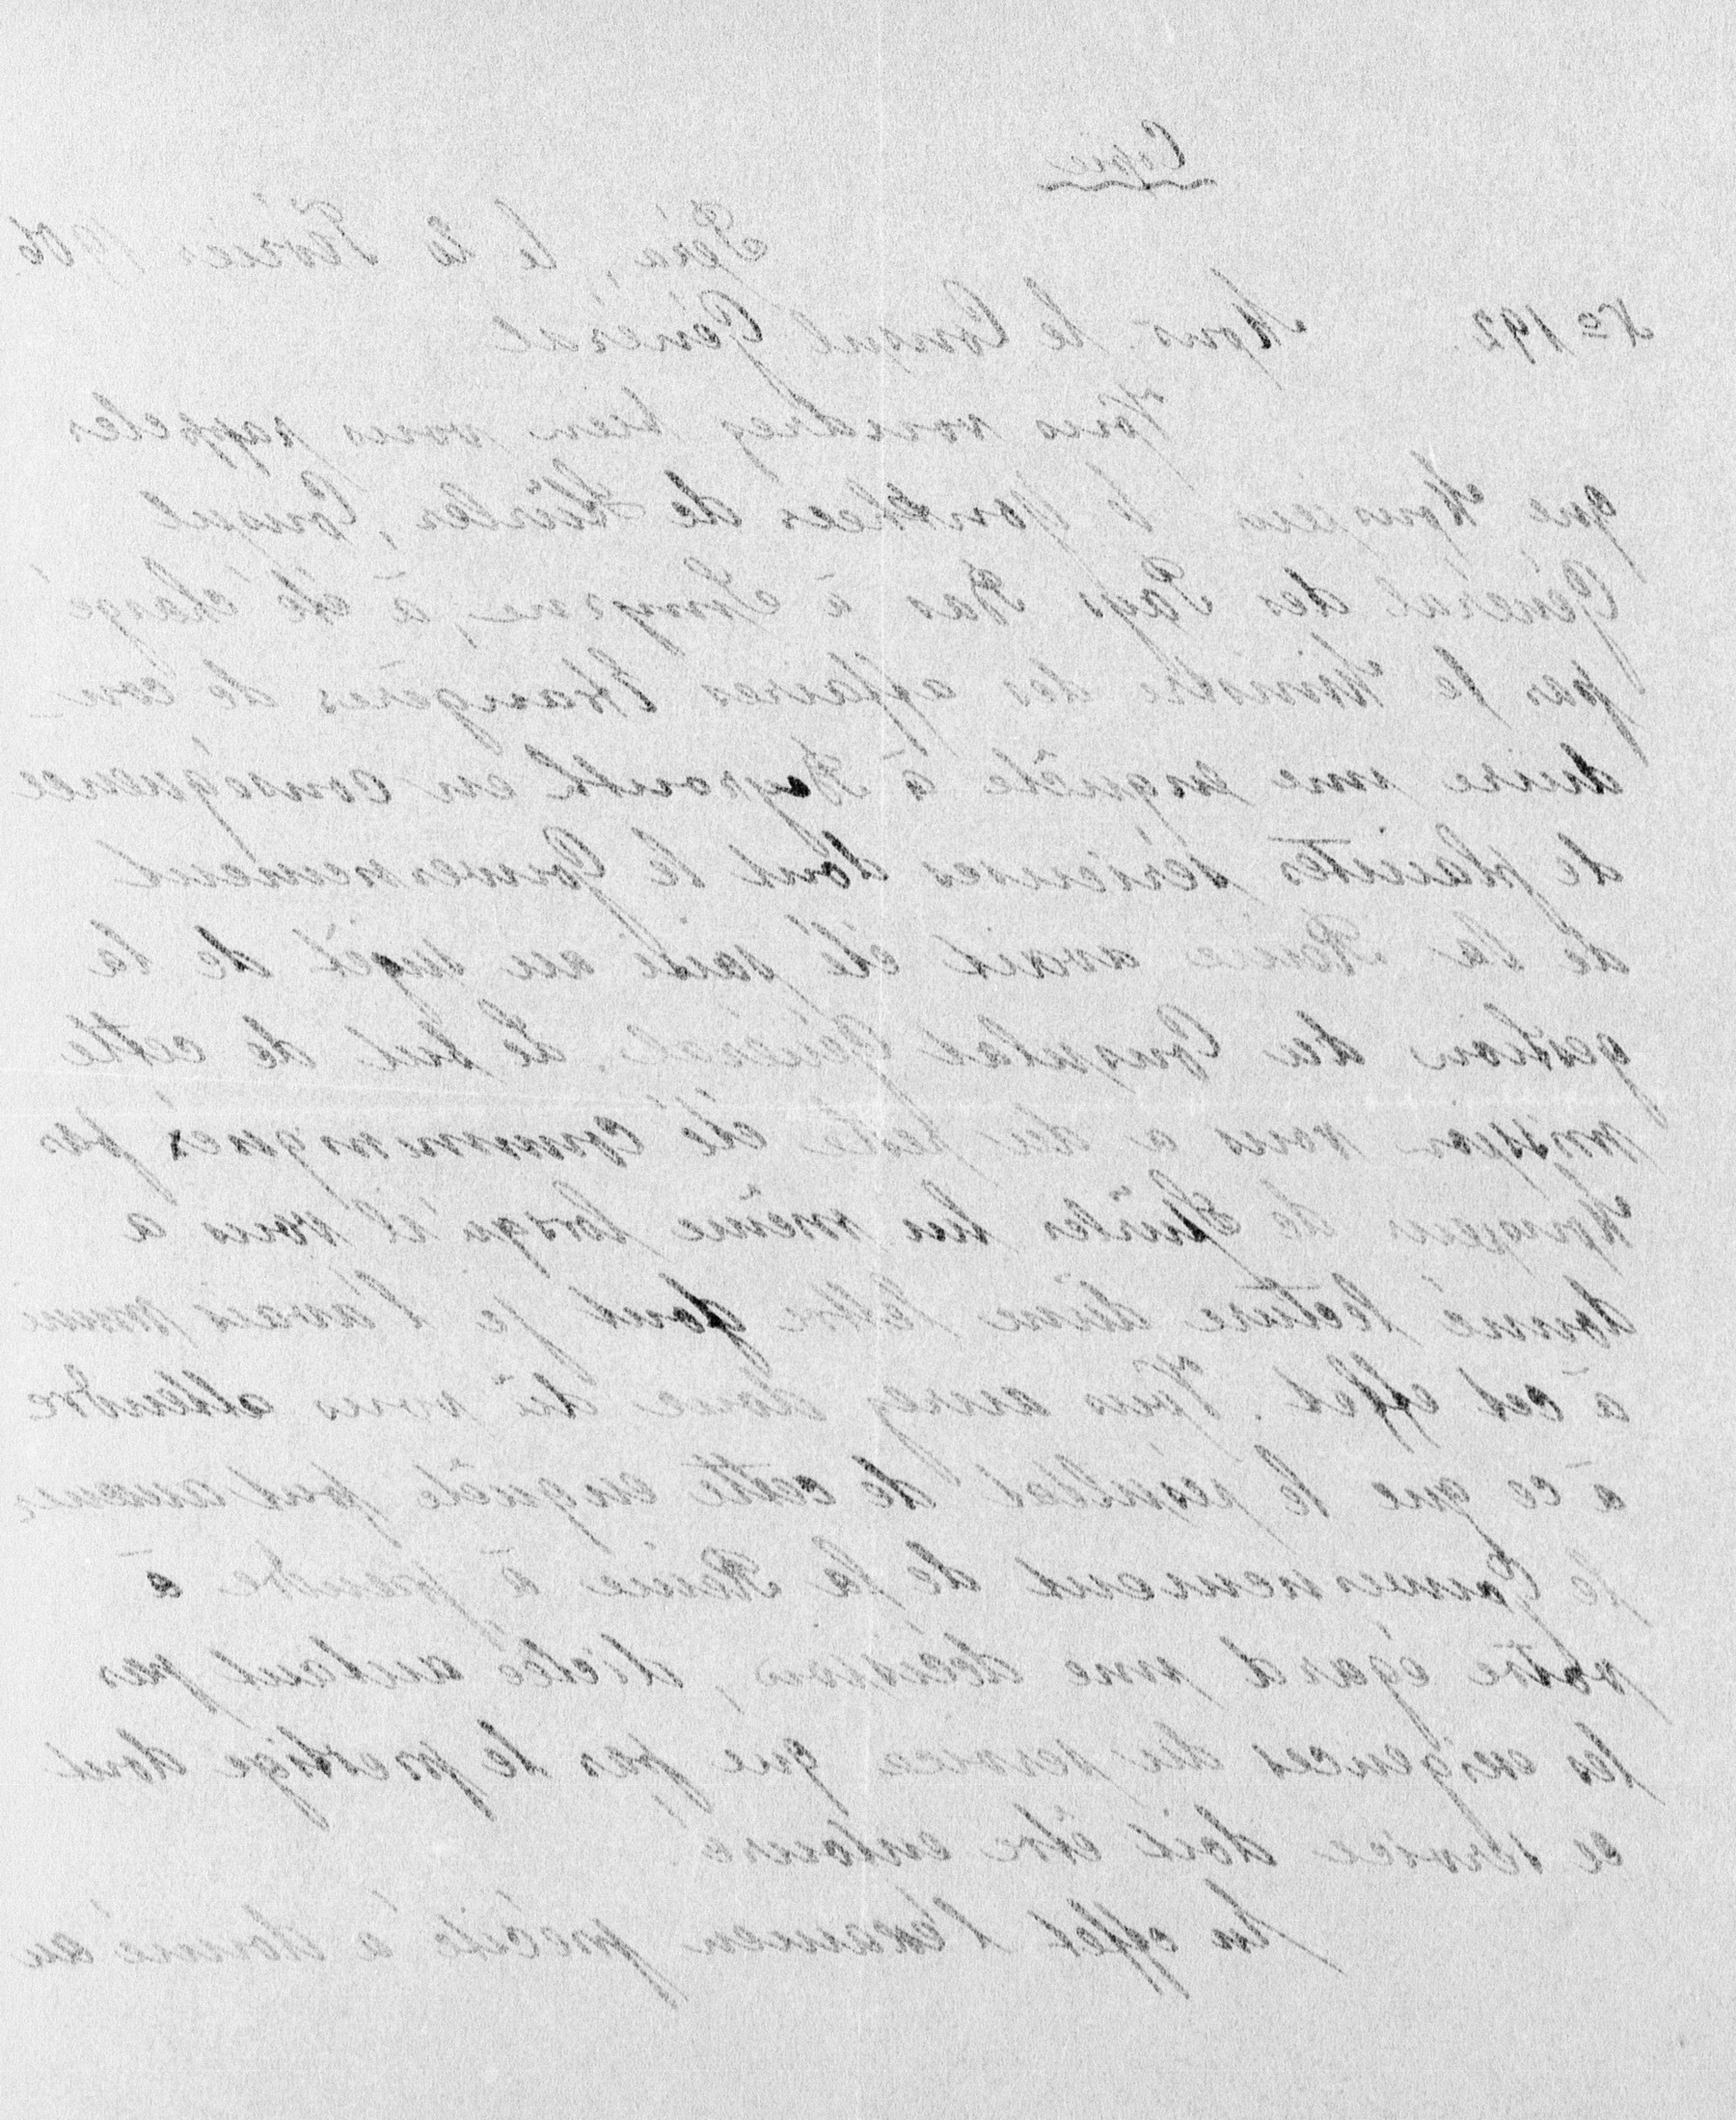 Copie
Péra, le 20 Février 1906
No 192. Mons. le Consul Général
Vous voudrez bien vous rappeler
que Monsieur de Hürler, Consul
Général des Pays Bas à Smyrne, à été chargé
par le Ministre des affaires Etrangères de con-
duire une enquête à Beyrouth en conséquence
de plaintes sérieuses dont le Gouvernement
de la Reine avait été saisi au sujet de la
gestion du Consulat Général. Le but de cette
mission vous a du reste été communiqué par
Monsieur de Hürler lui même lorsqu'il vous a
donné lecture d'une lettre dont je l'avais muni
à cet effet. Vous aurez donc dû vous attendre
à ce que le résultat de cette enquête put amener
le Gouvernement de la Reine à prendre à
votre égard une décision, dictée autant par
les exigences du service que par le prestige dont
ce service doit être entouré.
En effet l'examen précité a donné au